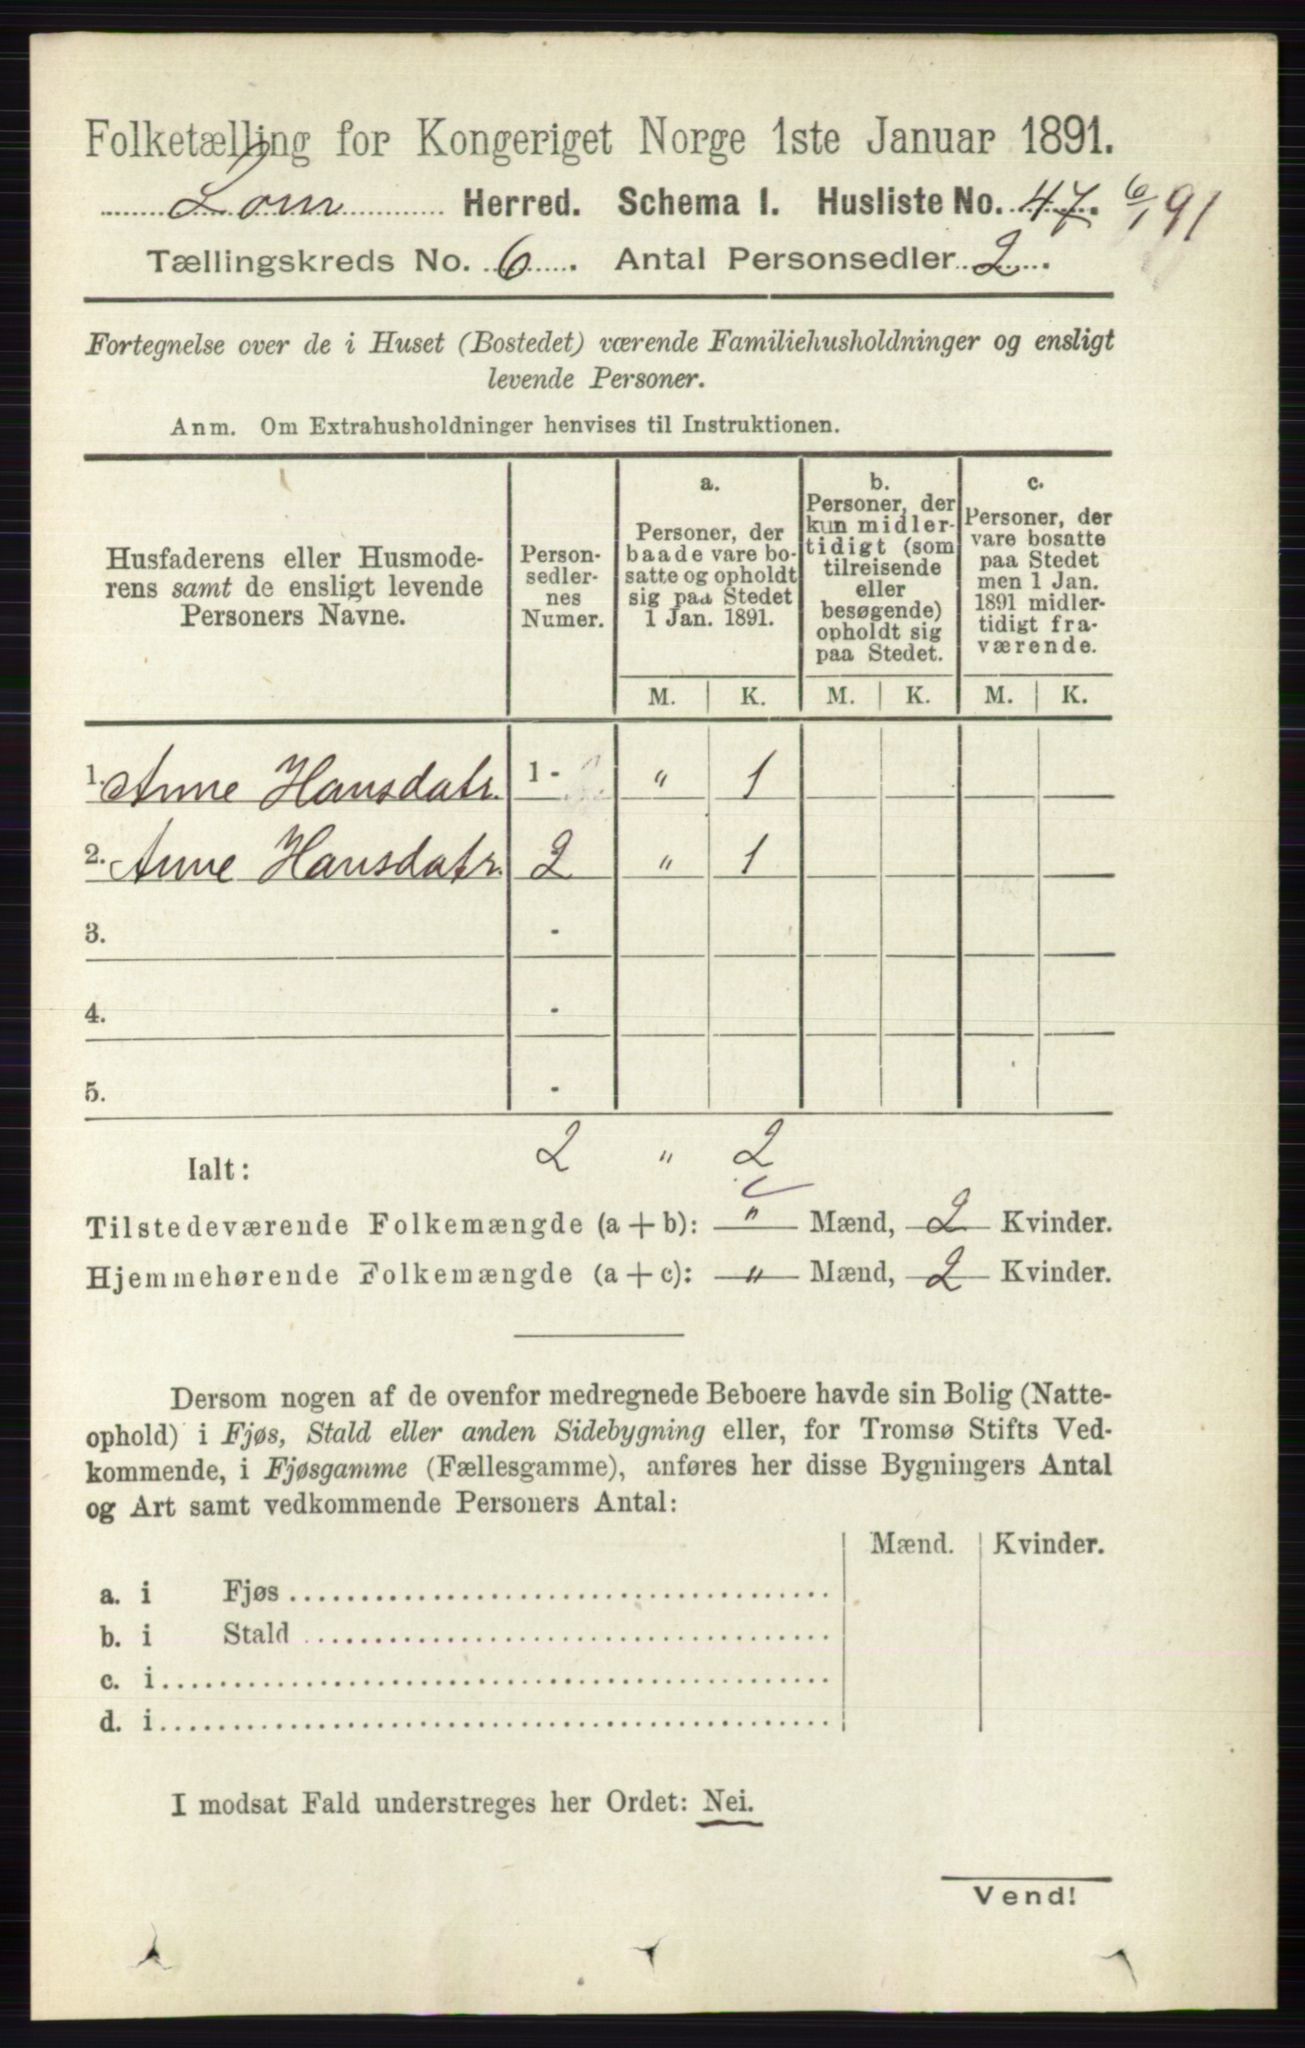 Folketælling for Kongeriget Norge 1ste Januar 1891.
Lom Herred. Schema I. Husliste No. 47. 6/1 91
Tællingskreds No. 6. Antal Personsedler 2.
Fortegnelse over de i Huset (Bostedet) værende Familiehusholdninger og ensligt
levende Personer.
Anm. Om Extrahusholdninger henvises til Instruktionen.
Husfaderens eller Husmode-
rens samt de ensligt levende
Personers Navne.
Person-
sedler-
nes
Numer.
a.
Personer, der
baade vare bo-
satte og opholdt
sig paa Stedet
1 Jan. 1891.
b.
Personer, der
kun midler-
tidigt (som
tilreisende
eller
besøgende)
opholdt sig
paa Stedet.
c.
Personer, der
vare bosatte
paa Stedet
men 1 Jan.
1891 midler-
tidigt fra-
værende.
M. K. M. K. M. K.
1. Anne Hansdatr. 1 - " 1
2. Anne Hansdatr. 2 " 1
3. -
4. -
5. -
Ialt: 2 " 2
Tilstedeværende Folkemængde (a + b): " Mænd, 2 Kvinder.
Hjemmehørende Folkemængde (a + c): " Mænd, 2 Kvinder.
Dersom nogen af de ovenfor medregnede Beboere havde sin Bolig (Natte-
ophold) i Fjøs, Stald eller anden Sidebygning eller, for Tromsø Stifts Ved-
kommende, i Fjøsgamme (Fællesgamme), anføres her disse Bygningers Antal
og Art samt vedkommende Personers Antal:
Mænd. Kvinder.
a. i Fjøs
b. i Stald
c. i
d. i
I modsat Fald understreges her Ordet: Nei.
Vend!